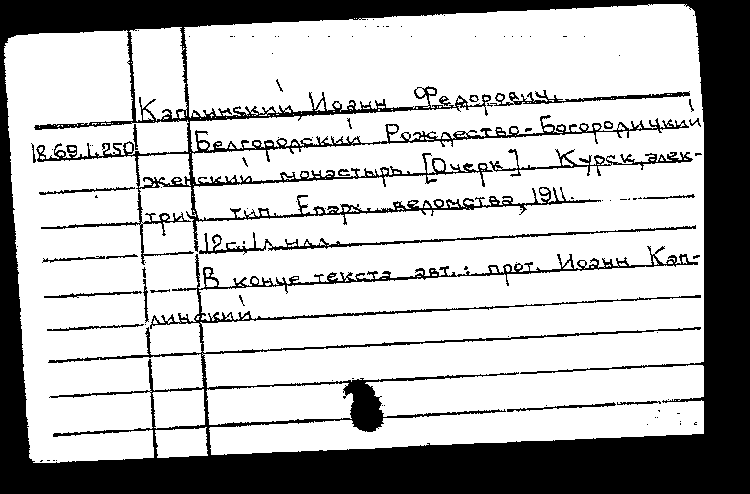 Каплинский, Иоанн Федорович.
18.69.1.250 Белгородский Рождество-Богородицкий
женский монастырь. [Очерк]. Курск, элек-
трич. тип. Епарх. ведомства, 1911.
12с.; 1л. илл.
В конце текста авт.: прот. Иоанн Кап-
линский.